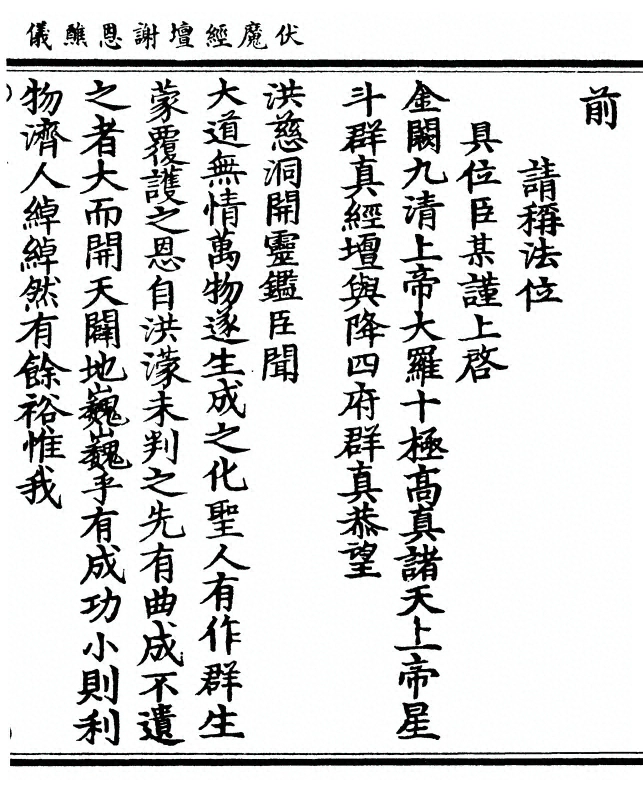 伏魔經壇謝恩醮儀
前
請稱法位
具位臣某謹上啓
金闕九清上帝大羅十極高真諸天上帝星
斗群真經壇與降四府群真恭望
洪慈洞開靈鑑臣聞
大道無情萬物遂生成之化聖人有作群生
蒙覆護之恩自洪濛未判之先有曲成不遺
之者大而開天闢地巍巍乎有成功小則利
物濟人綽綽然有餘裕惟我